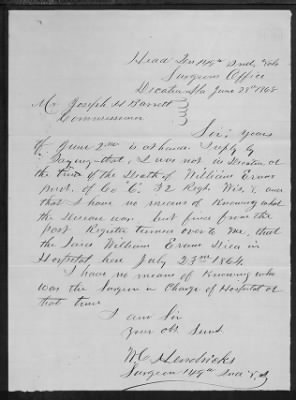 Head Qrs 149th Ind. Vols
Surgeons Office
Decatur Ala June 28th 1865
Mr Joseph H Barrett
Commissioner
Sir; Yours
of June 2nd is at hand I reply by
Saying that, I was not in Decatur at
the time of the Death of William Evans
Pivt. of Co "C." 32 Regt. Wis. V. and
that I have no means of Knowing what
the Disease was. but find from the
post Register turned over to me, that
the Said William Evans Died in
Hospital here July 23rd 1864.
I have no means of Knowing who
was the Surgeon in Charge of Hospital at
that time
I am Sir
Your obt. Servt.
W C Hendricks
Surgeon 149th Ind V. I